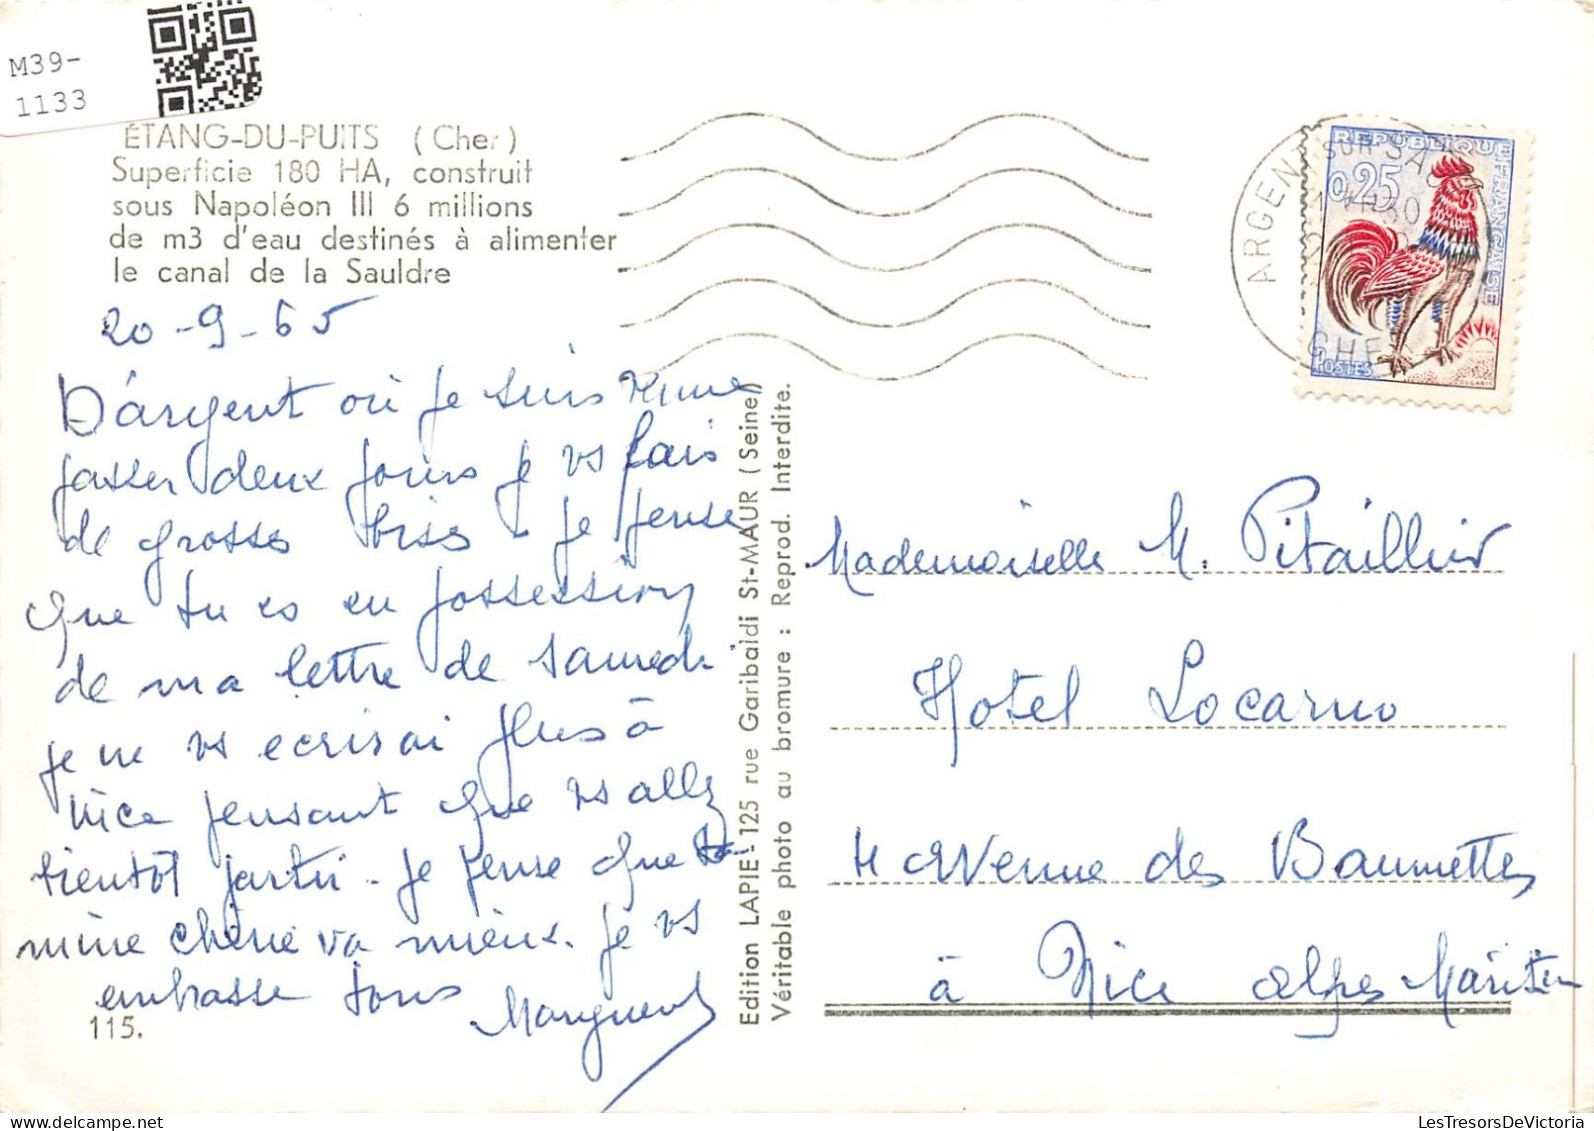 M39-
1133
ÉTANG-DU-PUITS (Cher)
Superficie 180 HA, construit
sous Napoléon III 6 millions
de m3 d'eau destinés à alimenter
le canal de la Sauldre
20-9-65
D'argent où je suis venue
passer deux jours je vs fais
de grosses bises. Je pense
que tu es en possession
de ma lettre de samedi
je ne vs ecrirai plus à
Nice pensant que vs allez
bientôt partir. Je pense que ta
mine chérie va mieux. Je vs
embrasse tous
115.
Edition LAPIE - 125 rue Garibaldi St-MAUR (Seine)
Véritable photo au bromure : Reprod. Interdite.
ARGENT SUR SA
CHE
REPUBLIQUE FRANÇAISE
0,25
POSTES
Mademoiselle M. Pitaillier
Hotel Locarno
4 avenue des Baumettes
à Nice Alpes Maritimes
LesTresorsDeVictoria.com